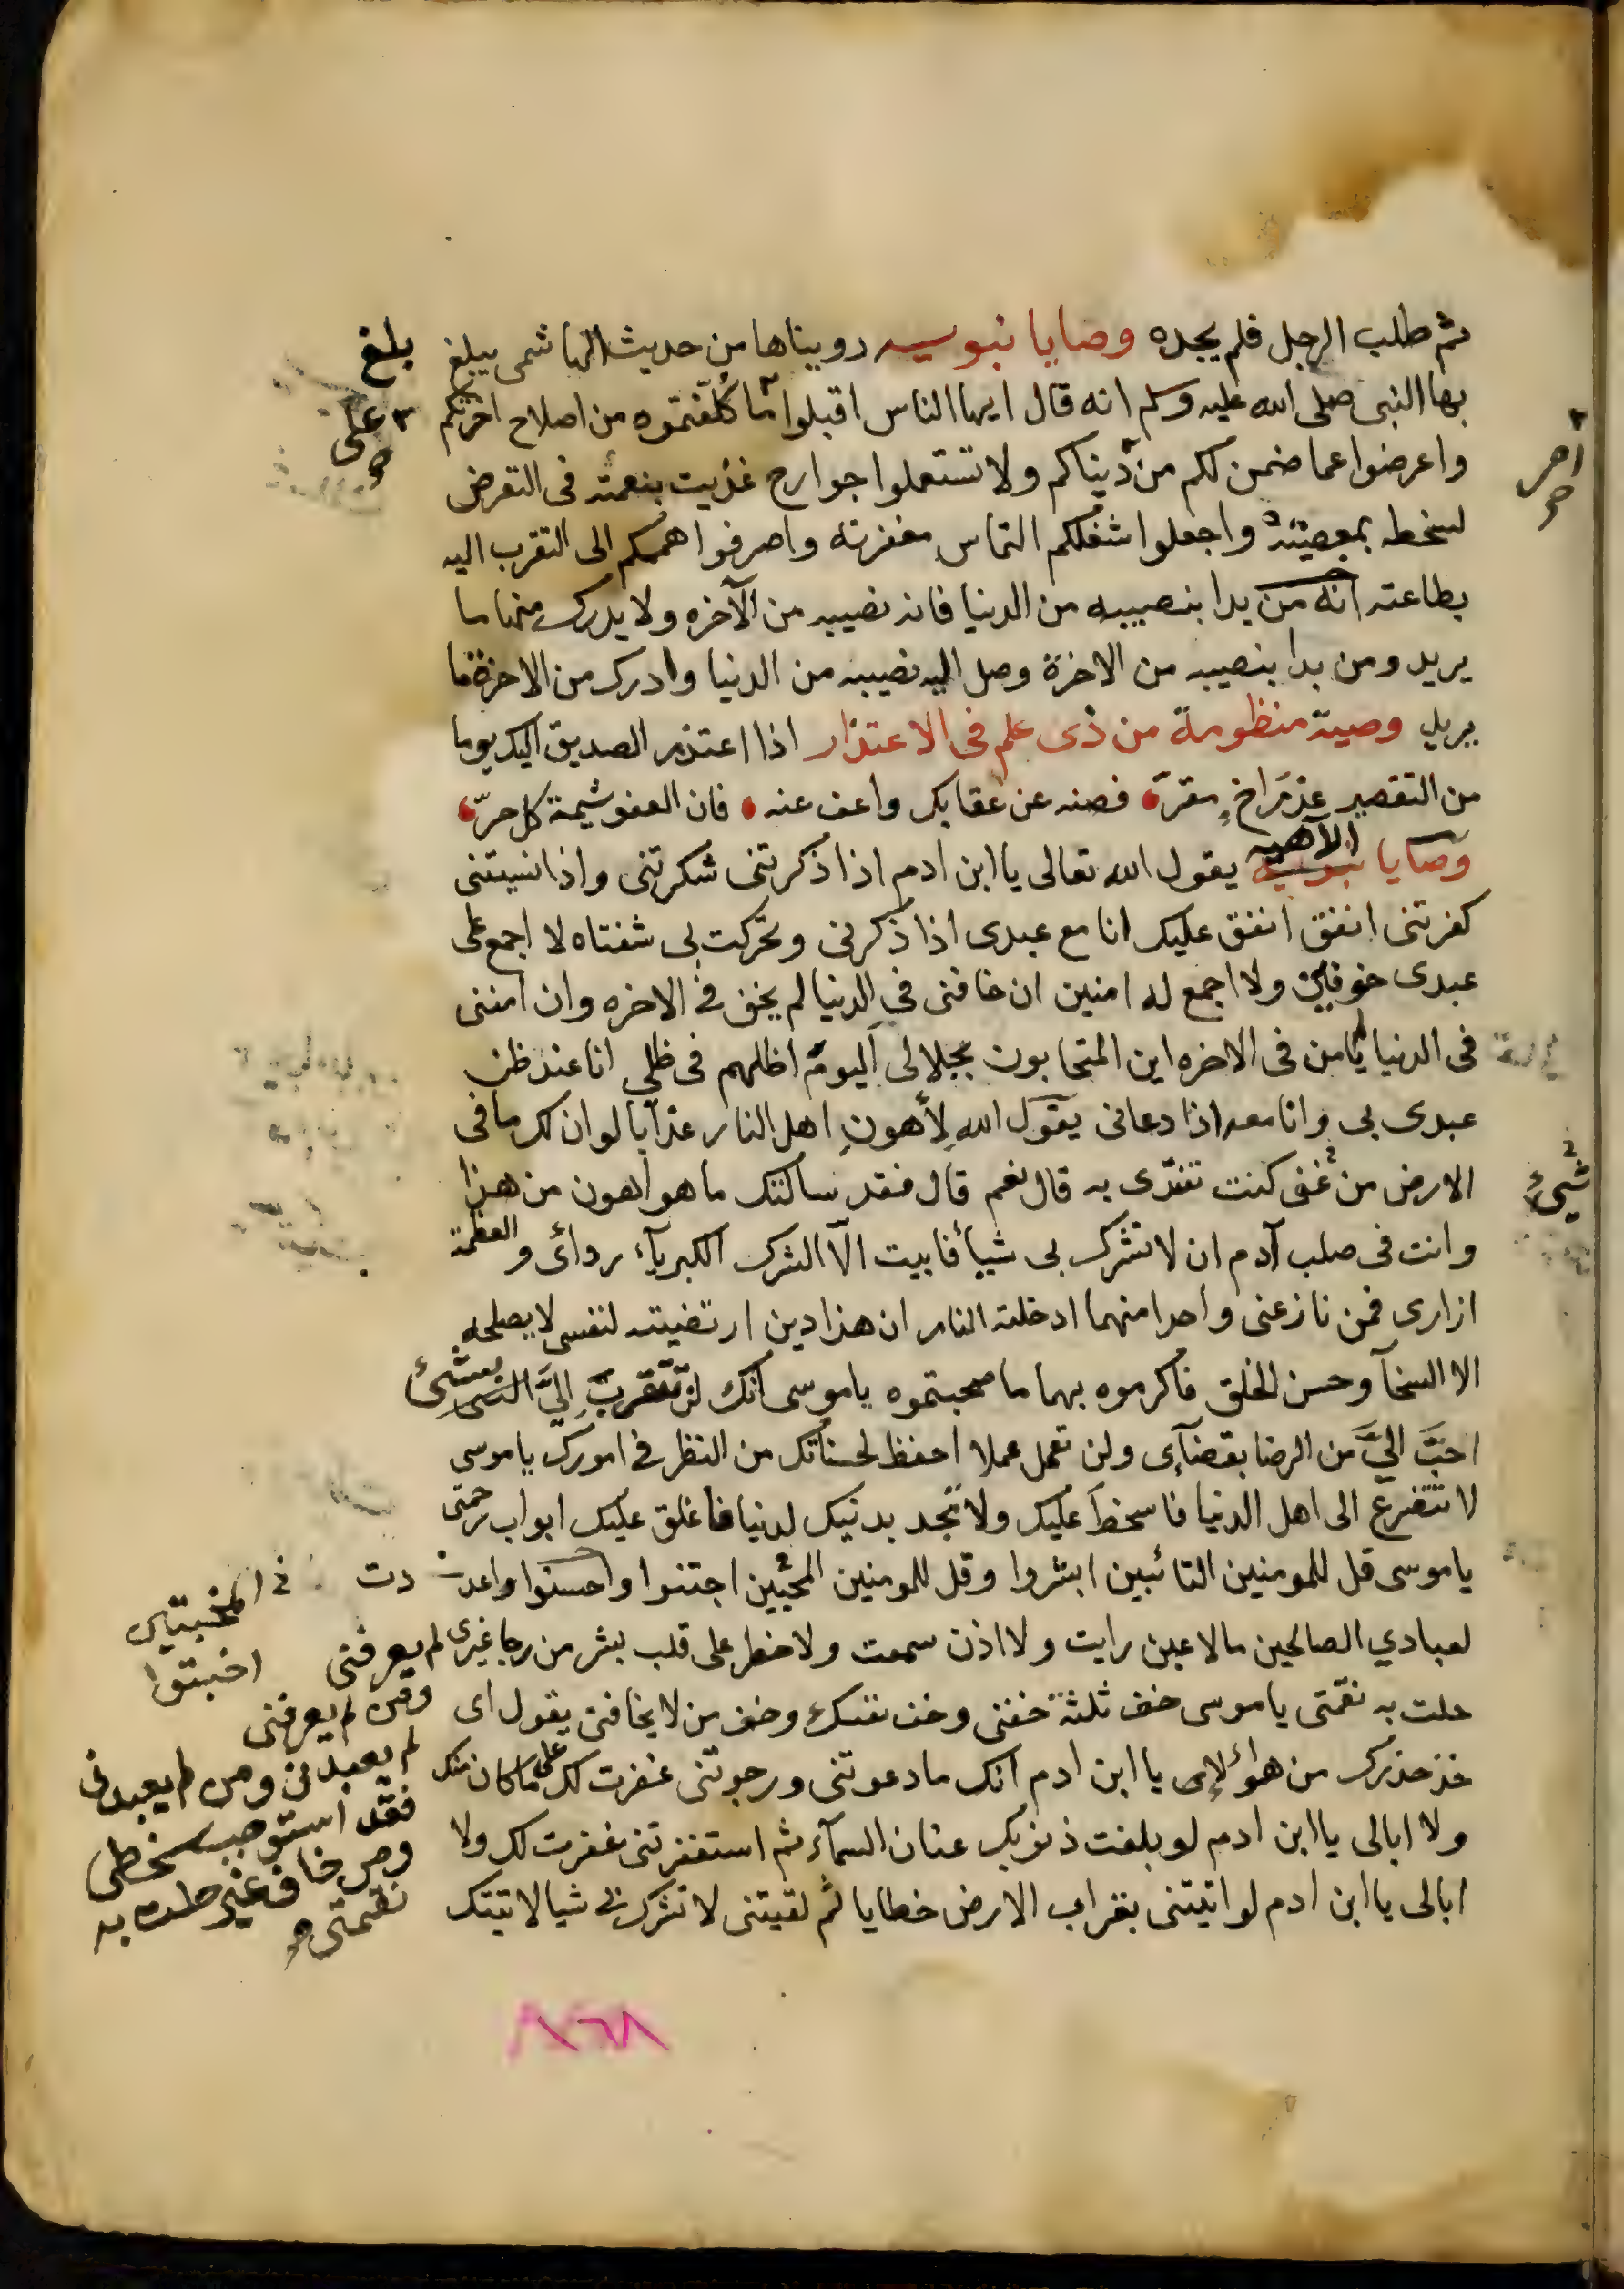 ثم طلب الرجل فلم يجده وصايا نبويه رويناها من حديث الهاشمى يبلغ
بها النبى صلى الله عليه وسلم انه قال ايها الناس اقبلوا ما كلفتموه من اصلاح اخرتكم
واعرضوا عما ضمن لكم من دنياكم ولا تستعملوا جوارح غذيت بنعمته فى التعرض
لسخطه بمعصيته واجعلوا شغلكم التماس مغفرته واصرفوا هممكم الى التقرب اليه
بطاعته انه من بدا بنصيبه من الدنيا فاته نصيبه من الآخره ولا يدرك منها ما
يريد ومن بدا بنصيبه من الاخرة وصل اليه نصيبه من الدنيا وادرك من الاخرة ما
يريد وصية منظومة من ذى علم فى الاعتذار اذا اعتذر الصديق اليك يوما
من التقصير عذر اخ مقر فصنه عن عقابك واعف عنه فان العفو شيمة كل حر
وصايا نبويه الآهيه يقول الله تعالى يا ابن ادم اذا ذكرتنى شكرتنى واذا نسيتنى
كفرتنى انفق انفق عليك انا مع عبدى اذا ذكرنى وتحركت بى شفتاه لا اجمع على
عبدى خوفين ولا اجمع له امنين ان خافنى في الدنيا لم يخف فى الاخره وان امننى
فى الدنيا لم يامن فى الاخره اين المتحابون بجلالى اليوم اظلهم فى ظلي انا عند ظن
عبدى بى وانا معه اذا دعانى يقول الله لأهون اهل النار عذابا لو ان لك ما فى
الارض من كنت تفتدى به قال نعم قال فقد سالتك ما هو اهون من هذا
وانت فى صلب آدم ان لا تشرك بى شيأ فابيت الا الشرك الكبرياء ردائى والعظمة
ازارى فمن نازعنى واحدا منهما ادخلته النار ان هذا دين ارتضيته لنفسى لا يصلحه
الا السخآ وحسن الخلق فاكرموه بهما ما صحبتموه يا موسى انك لن تتقرب الي بشئ
احب الي من الرضا بقضآى ولن تعمل عملا احفظ لحسناتك من النظر فى امورك يا موسى
لا تتضرع الى اهل الدنيا فاسخط عليك ولا تجد بدينك لدنيا فاغلق عليك ابواب رحمتى
يا موسى قل للمومنين التائبين ابشروا وقل للمومنين المحبين اجتنوا واحسنوا واعددت
لعبادي الصالحين ما لا عين رايت ولا اذن سمعت ولا خطر على قلب بشر من رجا غيرى لم يعرفنى
حلت به نقمتى يا موسى خف ثلثة خفنى وخف نفسك وخف من لا يخافنى يقول اى
خذ حذرك من هؤلاء يا ابن ادم انك ما دعوتنى ورجوتنى غفرت لك على ما كان منك
ولا ابالى يا ابن ادم لو بلغت ذنوبك عنان السمآء ثم استغفرتنى غفرت لك ولا
ابالى يا ابن ادم لو اتيتنى بقراب الارض خطايا ثم لقيتنى لا تشرك بى شيا لاتيتك
بلغ
على
شئ
المخبتين
اخبتوا
ومن لم يعرفنى
لم يعبدنى ومن لم يعبدنى
فقد استوجب سخطى
ومن خاف غيرى حلت به
نقمتى